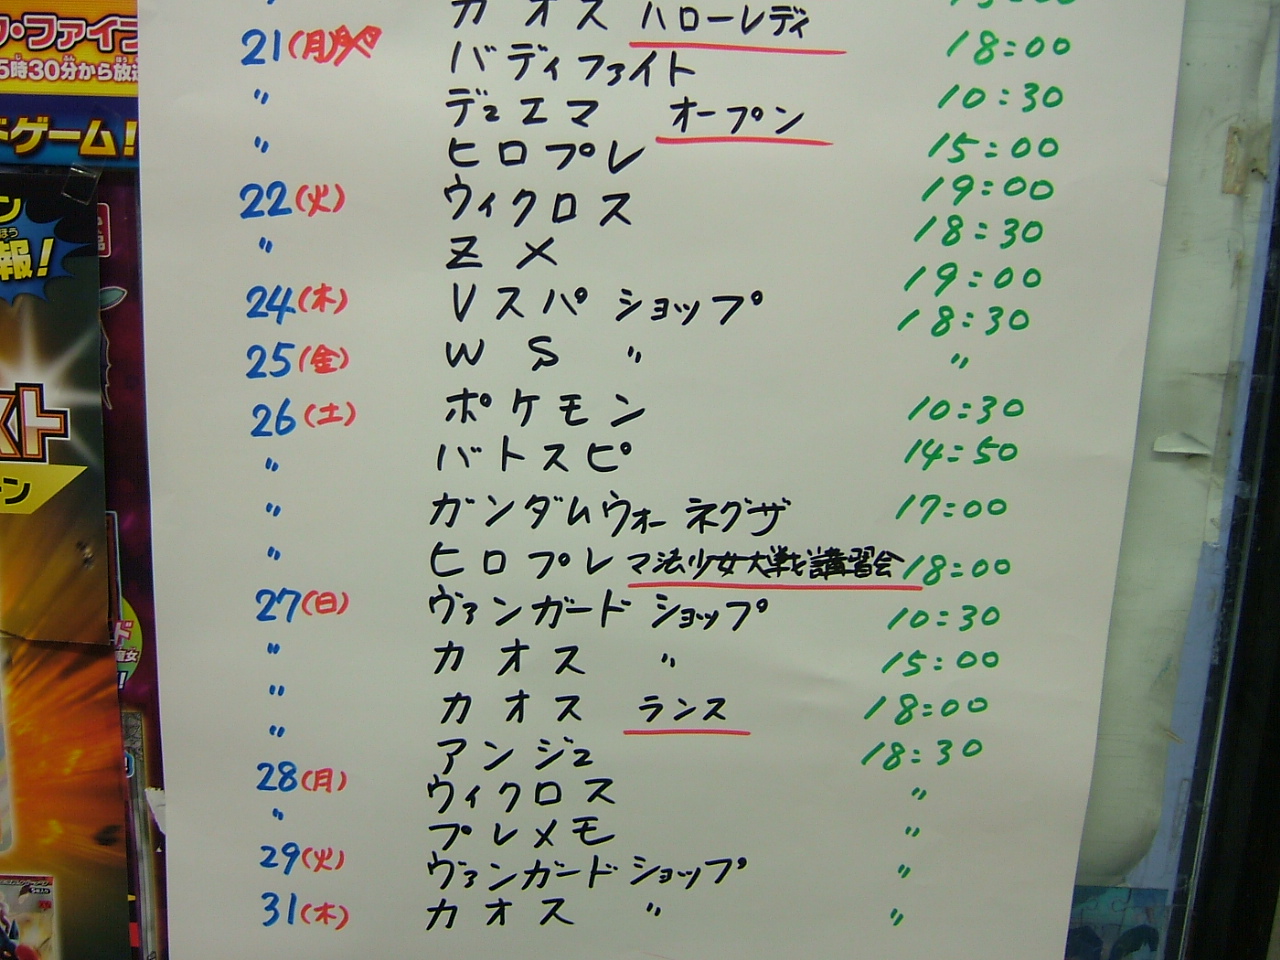 ク・ファイブ
5時30分から放送
ドゲーム!
報!
スト
15:00
〃 カオス ハローレディ 18:00
21(月) バディファイト 10:30
〃 デュエマ オープン 15:00
〃 ヒロプレ 19:00
22(火) ウィクロス 18:30
〃 Z X 19:00
24(木) Vスパ ショップ 18:30
25(金) WS 〃 〃
26(土) ポケモン 10:30
〃 バトスピ 14:50
〃 ガンダムウォー ネグザ 17:00
〃 ヒロプレ マ法少女大戦講習会 18:00
27(日) ヴァンガード ショップ 10:30
〃 カオス 〃 15:00
〃 カオス ランス 18:00
〃 アンジュ 18:30
28(月) ウィクロス 〃
〃 プレメモ 〃
29(火) ヴァンガード ショップ 〃
31(木) カオス 〃 〃